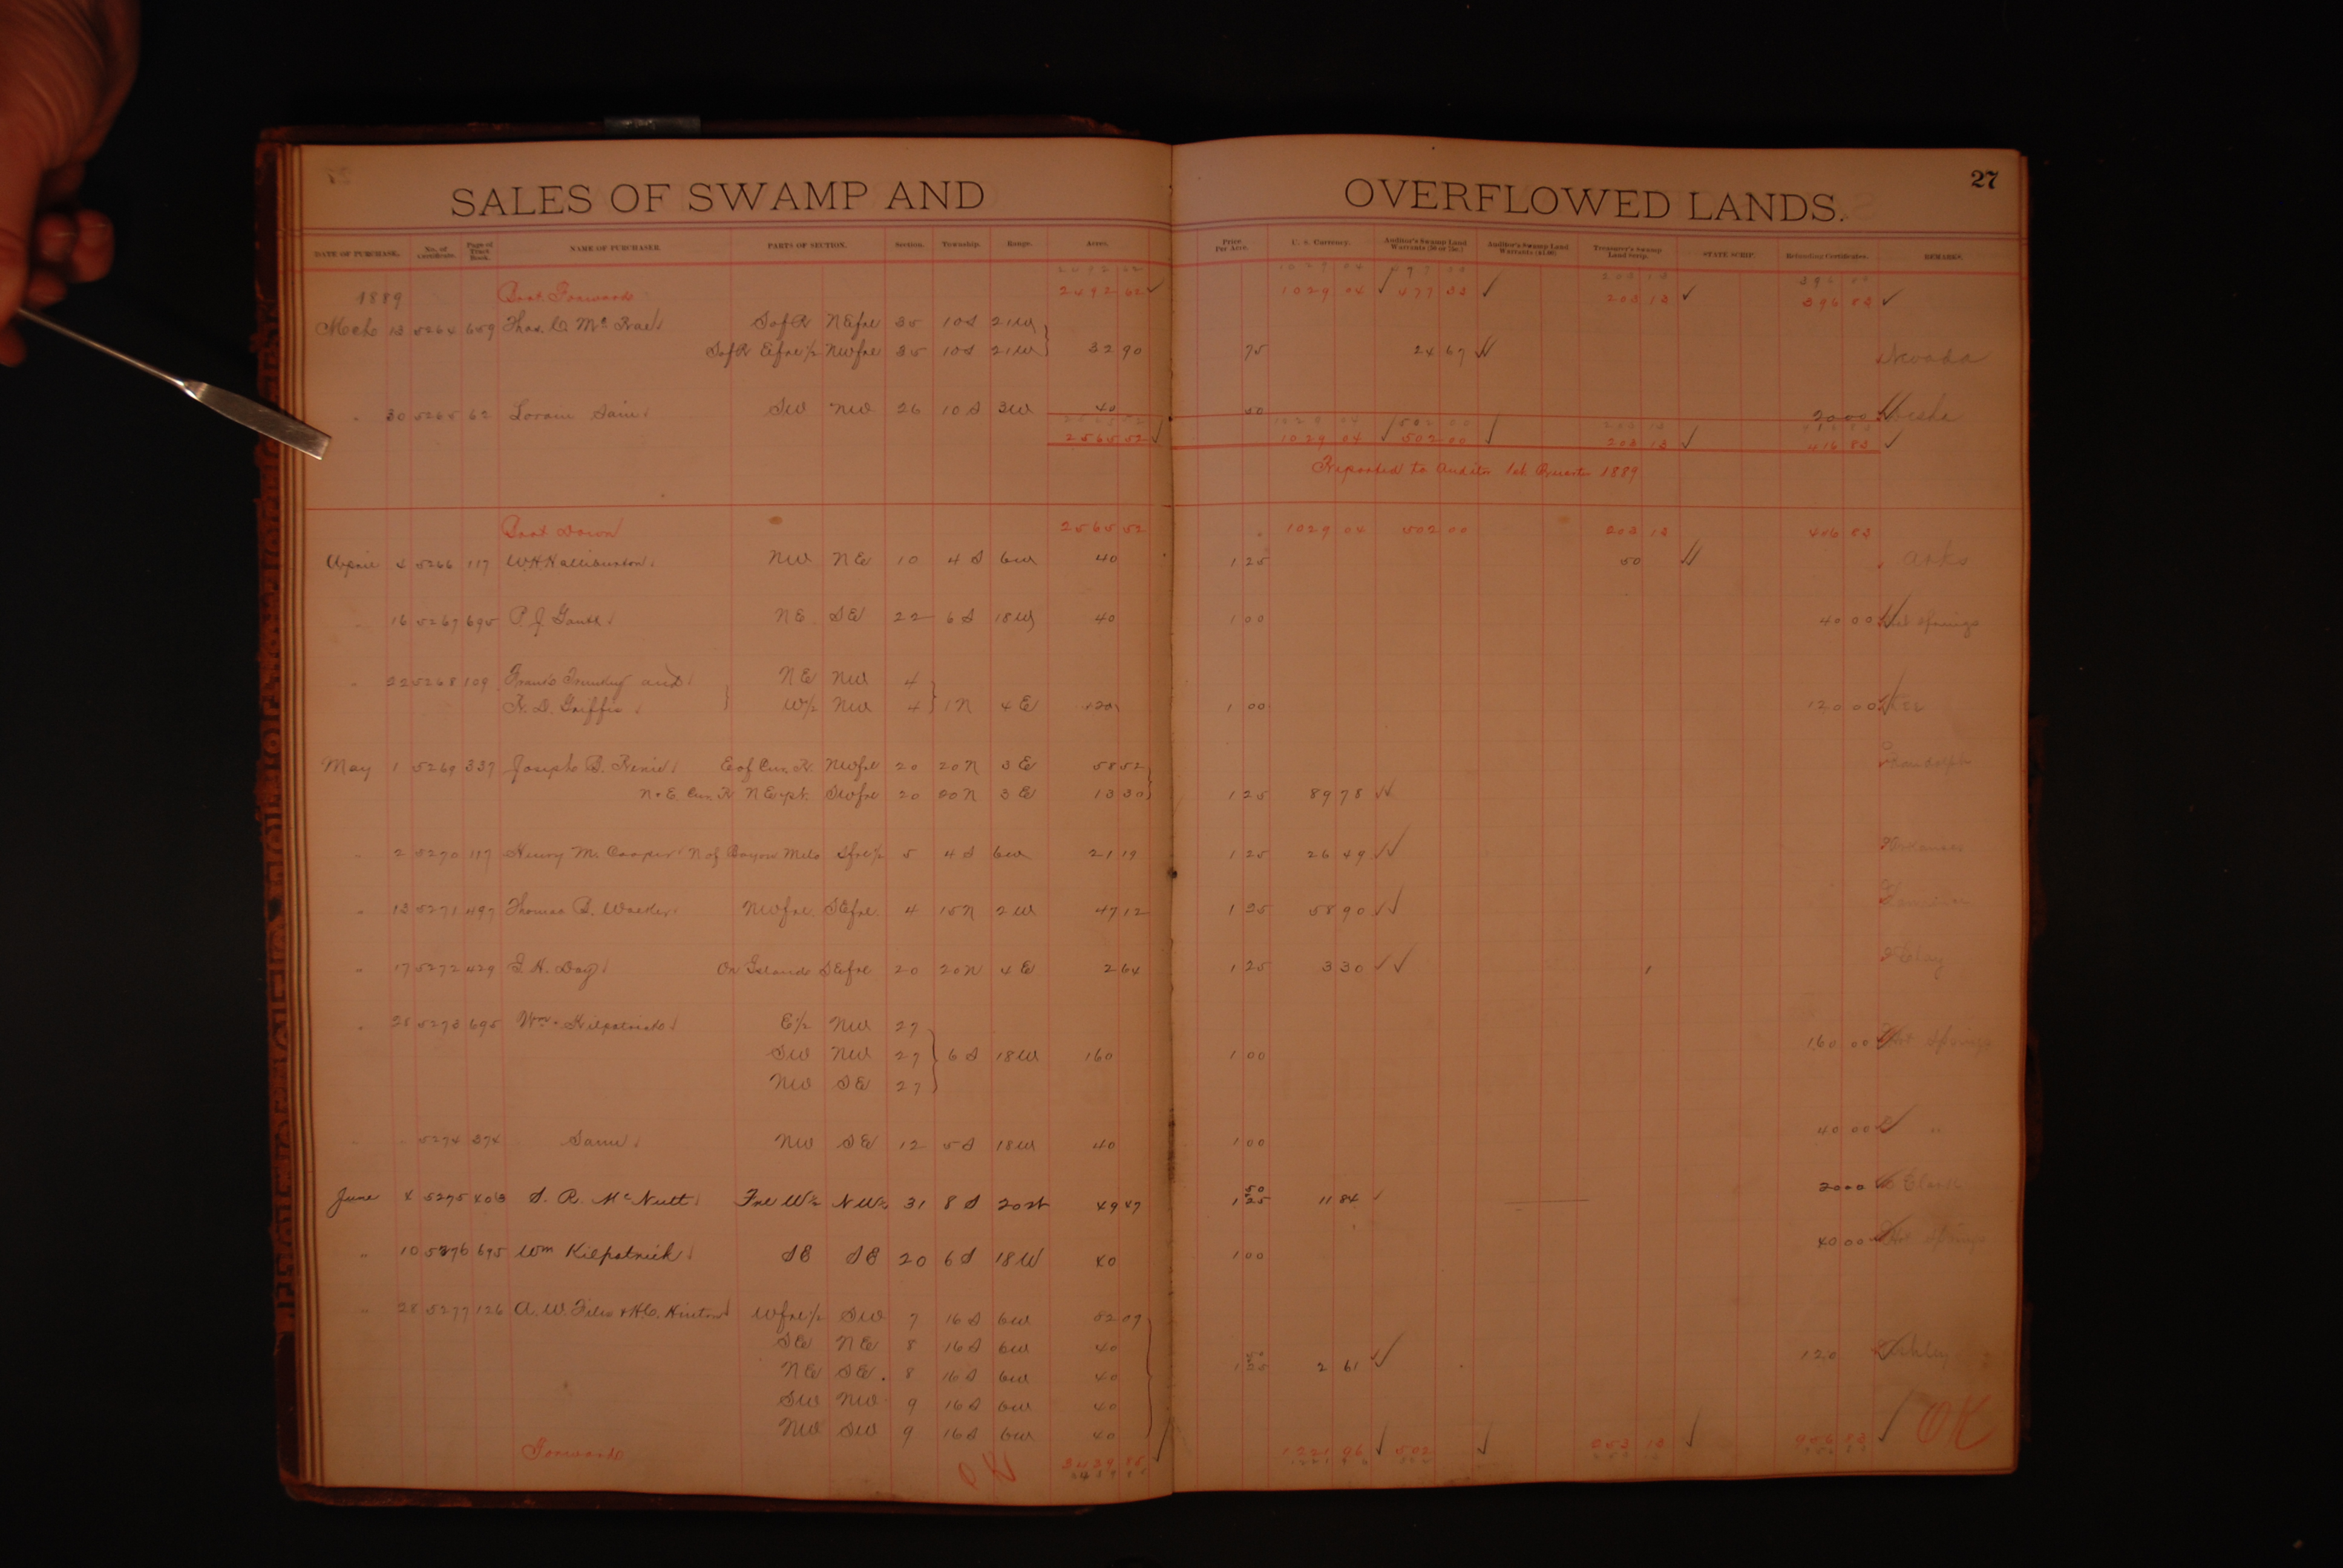 27
SALES OF SWAMP AND OVERFLOWED LANDS.
DATE OF PURCHASE. No. of Certificate. Page of Tract Book. NAME OF PURCHASER. PARTS OF SECTION. Section. Township. Range. Acres. Price Per Acre. U. S. Currency. Auditor's Swamp Land Warrants Auditor's Swamp Land Warrants Treasurer's Swamp Land Scrip. STATE SCRIP. Rebonding Certificates. REMARKS.
1889 Brot. Forward 2492 62 1029 04 477 33 203 13 396 83
Mch 13 5264 659 Thos. C. McRae SofR NEfrl 35 10S 21W
SofR Efrl 1/2 NWfrl 35 10S 21W 32 90 75 24 67 Nevada
" 30 5265 62 SW NW 26 10S 3W 40 50 20 00 Desha
2565 52 1029 04 502 00 203 13 416 83
Reported to Auditor 1st Quarter 1889
Brot Down 2565 52 1029 04 502 00 203 13 416 83
April 4 5266 117 W.H. Halliburton NW NE 10 4S 6W 40 1 25 50 Arks
" 16 5267 695 P. J. NE SE 22 6S 18W 40 1 00 40 00 Hot Springs
" 22 5268 109 Frank and NE NW 4
Griffin W1/2 NW 4 1N 4E 120 1 00 120 00 Lee
May 1 5269 337 Joseph B. E of Cur. R. NWfrl 20 20N 3E 58 52 Randolph
N & E Cur. R NE pt. SWfrl 20 20N 3E 13 30 1 25 89 78
" 2 5270 117 Henry M. Cooper N of Bayou Meto Sfrl 1/2 5 4S 6W 21 19 1 25 26 49 Arkansas
" 13 5271 497 Thomas B. NWfrl. SEfrl. 4 15N 2W 47 12 1 25 58 90
" 17 5272 429 Day On Island SEfrl 20 20N 4E 2 64 1 25 3 30 Clay
" 28 5273 695 Wm. Kilpatrick E1/2 NW 27
SW NW 27 6S 18W 160 1 00 160 00 Hot Springs
NW SE 27
" " 5274 374 Same NW SE 12 5S 18W 40 1 00 40 00 "
June 4 5275 403 S. R. McNutt Frl W1/2 NW 31 8S 20W 49 47 50 1 25 11 84 20 00 Clark
" 10 5276 695 Wm Kilpatrick SE SE 20 6S 18W 40 1 00 40 00 Hot Springs
" 28 5277 126 A. W. Files & H.C. Hinton Wfrl 1/2 SW 7 16S 6W 82 09
SE NE 8 16S 6W 40
NE SE. 8 16S 6W 40 1 25 2 61 120 Ashley
SW NW 9 16S 6W 40
NW SW 9 16S 6W 40
Forward OK 1221 96 502 253 13 956 83 OK